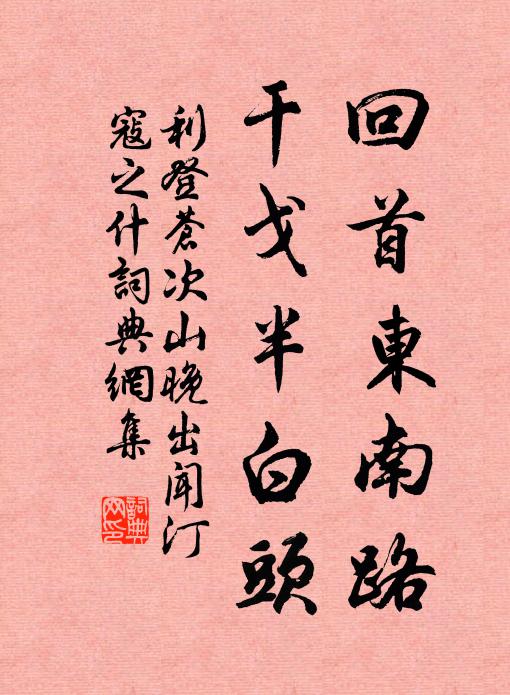 回首東南路
干戈半白頭
利登蒼次山晚出聞汀
寇之什詞典網集
詞典
网印